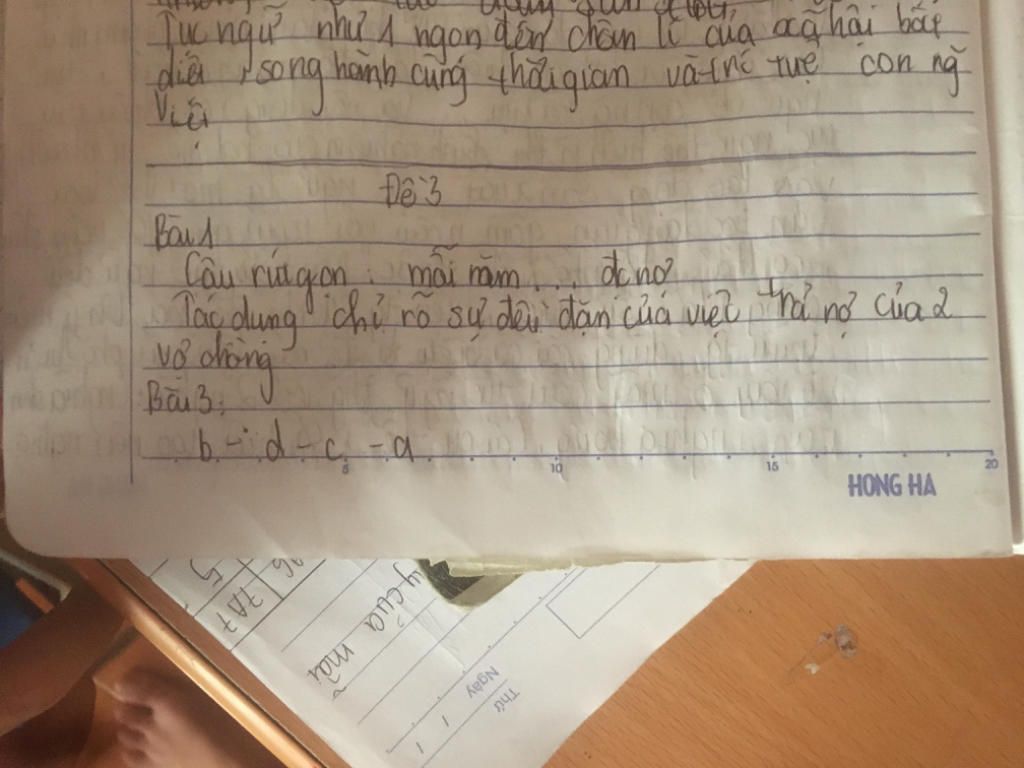 Tục ngữ như 1 ngọn đèn chân lí của xã hội bất
diệt, song hành cùng thời gian và trí tuệ con ng
Việt
Đề 3
Bài 1
Câu rút gọn : mỗi năm ... đc nợ
Tác dụng chỉ rõ sự đều đặn của việc trả nợ của 2
vợ chồng
Bài 3:
b - d - c - a
5 10 15 20
HONG HA
7A7
5
y của mẫu
Ngày
Thứ